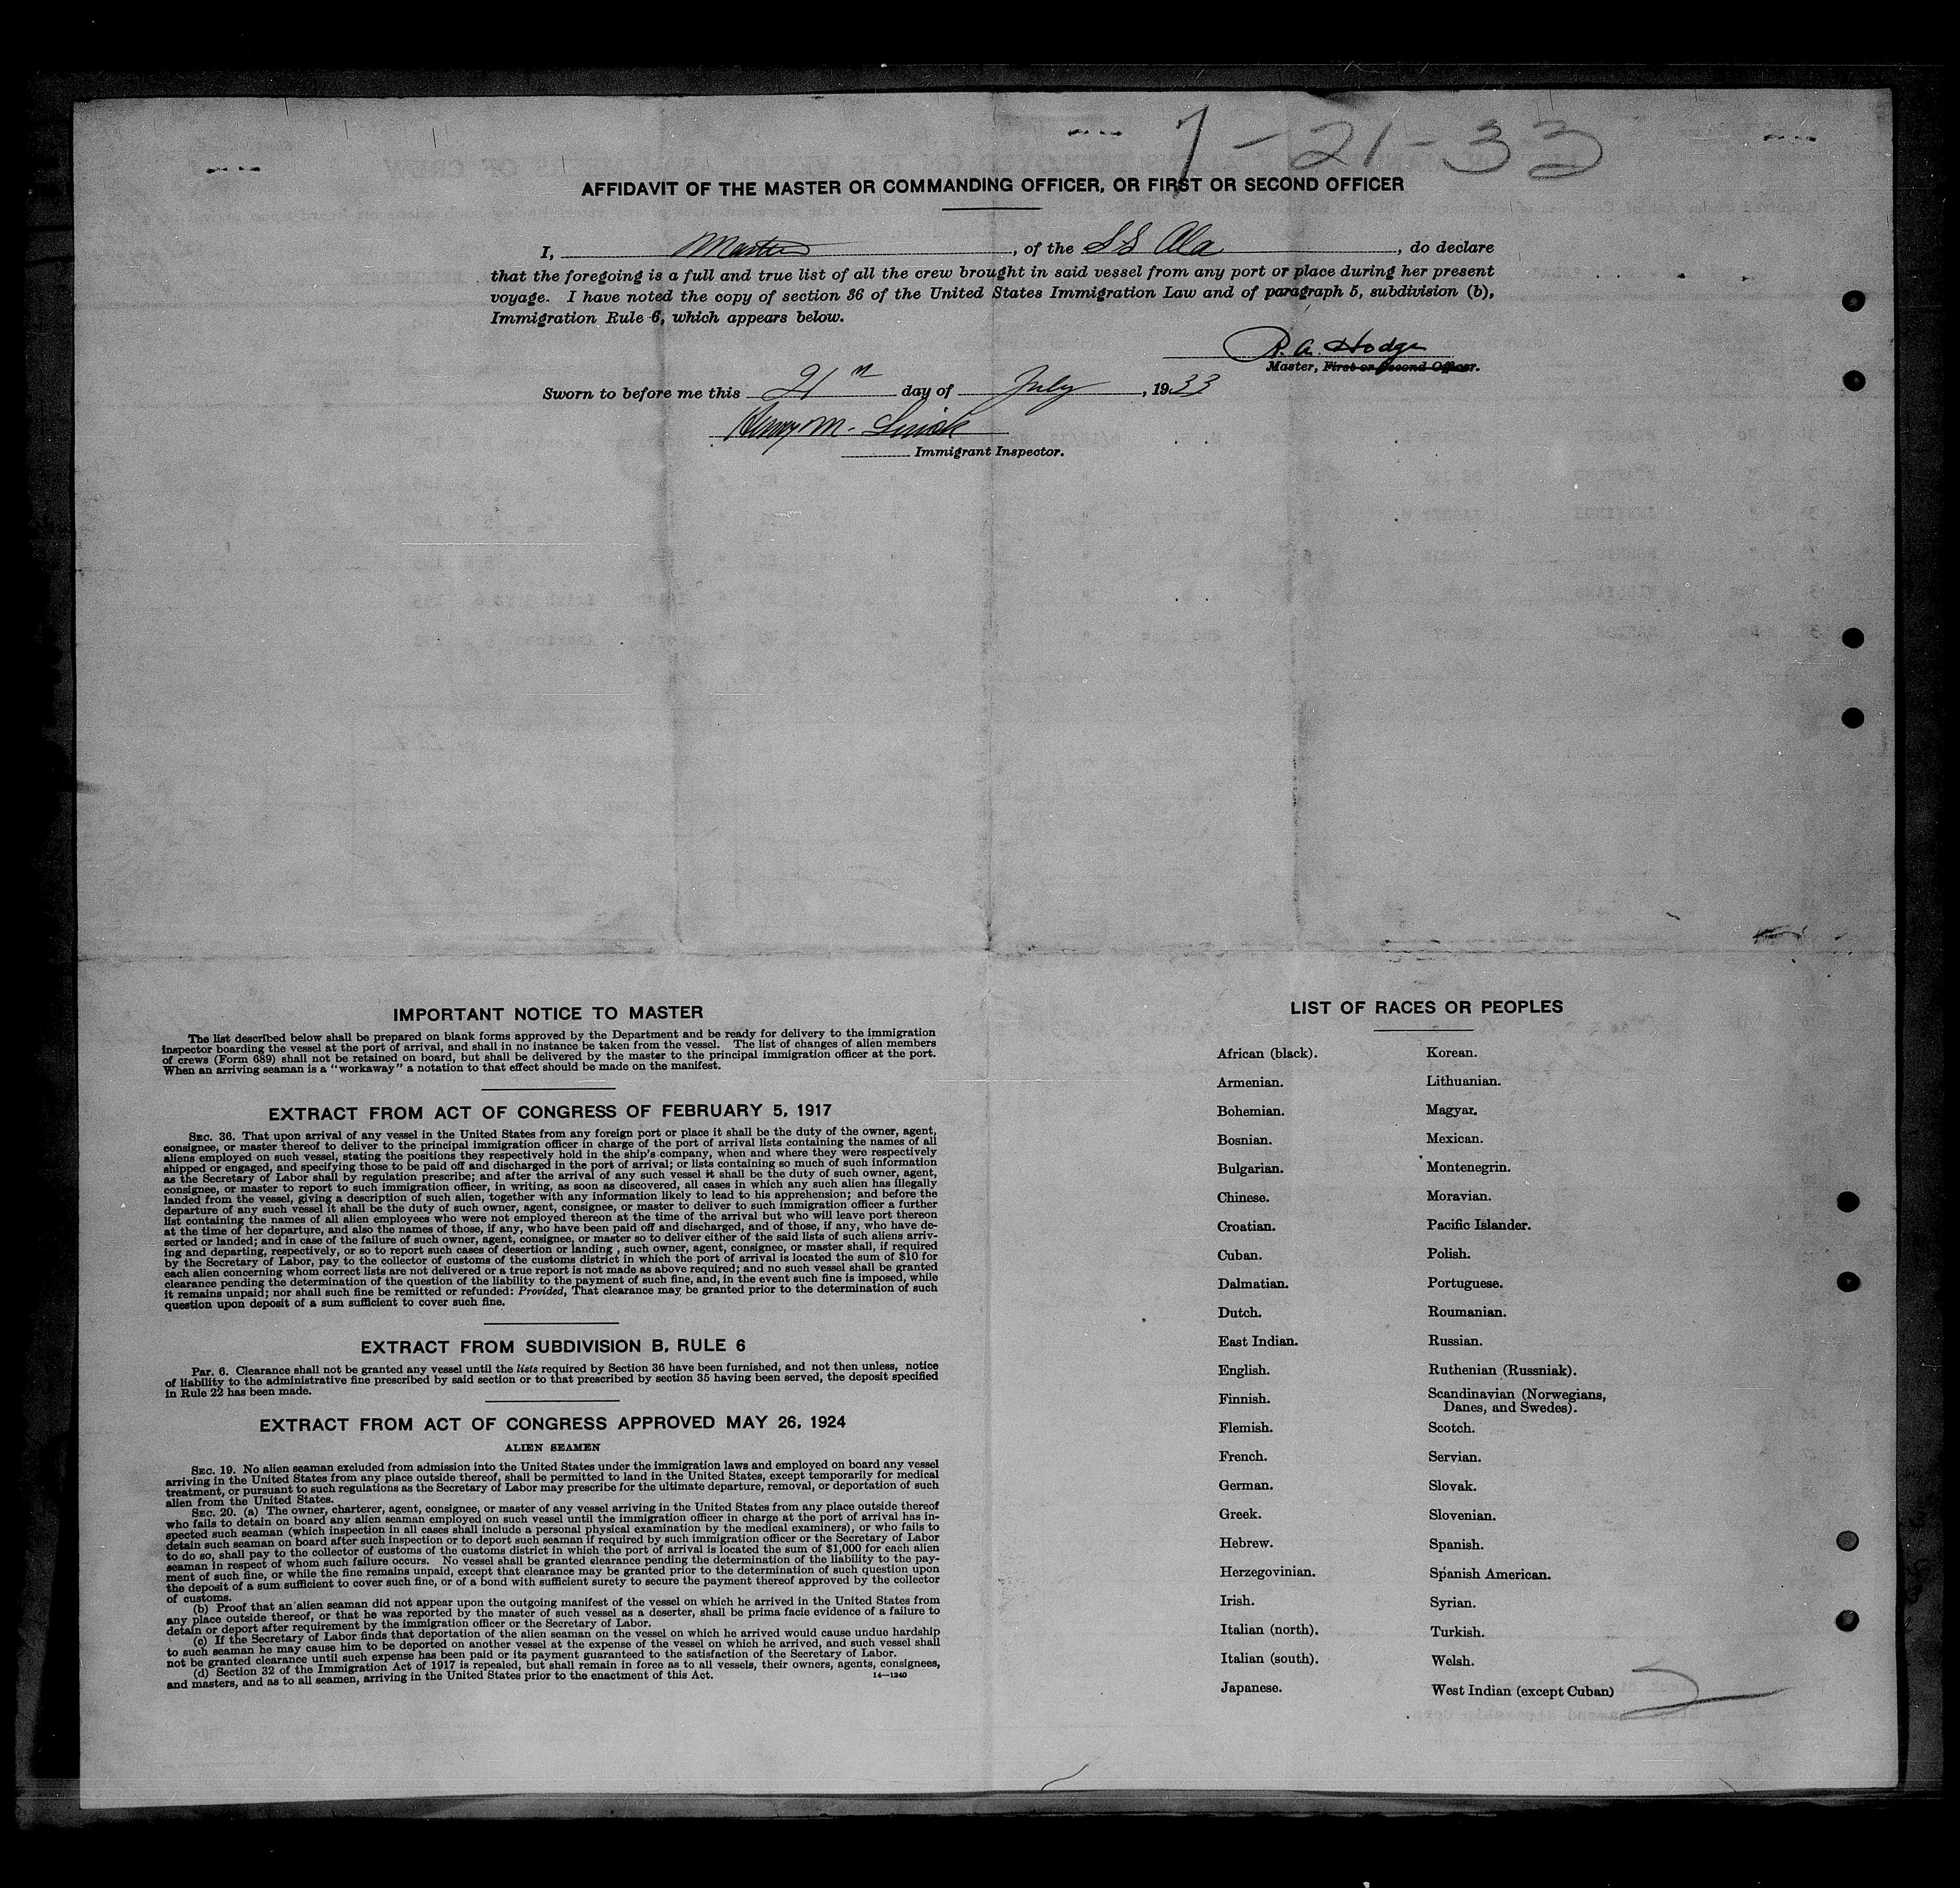 7-21-33
AFFIDAVIT OF THE MASTER OR COMMANDING OFFICER, OR FIRST OR SECOND OFFICER
I, Master, of the SS Ala, do declare
that the foregoing is a full and true list of all the crew brought in said vessel from any port or place during her present
voyage. I have noted the copy of section 36 of the United States Immigration Law and of paragraph 5, subdivision (b),
Immigration Rule 6, which appears below.
R. A. Hodge
Master, First or Second Officer.
Sworn to before me this 21 day of July, 1933
Henry M.
Immigrant Inspector.
IMPORTANT NOTICE TO MASTER
The list described below shall be prepared on blank forms approved by the Department and be ready for delivery to the immigration
inspector boarding the vessel at the port of arrival, and shall in no instance be taken from the vessel. The list of changes of alien members
of crews (Form 689) shall not be retained on board, but shall be delivered by the master to the principal immigration officer at the port.
When an arriving seaman is a "workaway" a notation to that effect should be made on the manifest.
EXTRACT FROM ACT OF CONGRESS OF FEBRUARY 5, 1917
SEC. 36. That upon arrival of any vessel in the United States from any foreign port or place it shall be the duty of the owner, agent,
consignee, or master thereof to deliver to the principal immigration officer in charge of the port of arrival lists containing the names of all
aliens employed on such vessel, stating the positions they respectively hold in the ship's company, when and where they were respectively
shipped or engaged, and specifying those to be paid off and discharged in the port of arrival; or lists containing so much of such information
as the Secretary of Labor shall by regulation prescribe; and after the arrival of any such vessel it shall be the duty of such owner, agent,
consignee, or master to report to such immigration officer, in writing, as soon as discovered, all cases in which any such alien has illegally
landed from the vessel, giving a description of such alien, together with any information likely to lead to his apprehension; and before the
departure of any such vessel it shall be the duty of such owner, agent, consignee, or master to deliver to such immigration officer a further
list containing the names of all alien employees who were not employed thereon at the time of the arrival but who will leave port thereon
at the time of her departure, and also the names of those, if any, who have been paid off and discharged, and of those, if any, who have de-
serted or landed; and in case of the failure of such owner, agent, consignee, or master so to deliver either of the said lists of such aliens arriv-
ing and departing, respectively, or so to report such cases of desertion or landing , such owner, agent, consignee, or master shall, if required
by the Secretary of Labor, pay to the collector of customs of the customs district in which the port of arrival is located the sum of $10 for
each alien concerning whom correct lists are not delivered or a true report is not made as above required; and no such vessel shall be granted
clearance pending the determination of the question of the liability to the payment of such fine, and, in the event such fine is imposed, while
it remains unpaid; nor shall such fine be remitted or refunded: Provided, That clearance may be granted prior to the determination of such
question upon deposit of a sum sufficient to cover such fine.
EXTRACT FROM SUBDIVISION B, RULE 6
Par. 6. Clearance shall not be granted any vessel until the lists required by Section 36 have been furnished, and not then unless, notice
of liability to the administrative fine prescribed by said section or to that prescribed by section 35 having been served, the deposit specified
in Rule 22 has been made.
EXTRACT FROM ACT OF CONGRESS APPROVED MAY 26, 1924
ALIEN SEAMEN
SEC. 19. No alien seaman excluded from admission into the United States under the immigration laws and employed on board any vessel
arriving in the United States from any place outside thereof, shall be permitted to land in the United States, except temporarily for medical
treatment, or pursuant to such regulations as the Secretary of Labor may prescribe for the ultimate departure, removal, or deportation of such
alien from the United States.
SEC. 20. (a) The owner, charterer, agent, consignee, or master of any vessel arriving in the United States from any place outside thereof
who fails to detain on board any alien seaman employed on such vessel until the immigration officer in charge at the port of arrival has in-
spected such seaman (which inspection in all cases shall include a personal physical examination by the medical examiners), or who fails to
detain such seaman on board after such inspection or to deport such seaman if required by such immigration officer or the Secretary of Labor
to do so, shall pay to the collector of customs of the customs district in which the port of arrival is located the sum of $1,000 for each alien
seaman in respect of whom such failure occurs. No vessel shall be granted clearance pending the determination of the liability to the pay-
ment of such fine, or while the fine remains unpaid, except that clearance may be granted prior to the determination of such question upon
the deposit of a sum sufficient to cover such fine, or of a bond with sufficient surety to secure the payment thereof approved by the collector
of customs.
(b) Proof that an alien seaman did not appear upon the outgoing manifest of the vessel on which he arrived in the United States from
any place outside thereof, or that he was reported by the master of such vessel as a deserter, shall be prima facie evidence of a failure to
detain or deport after requirement by the immigration officer or the Secretary of Labor.
(c) If the Secretary of Labor finds that deportation of the alien seaman on the vessel on which he arrived would cause undue hardship
to such seaman he may cause him to be deported on another vessel at the expense of the vessel on which he arrived, and such vessel shall
not be granted clearance until such expense has been paid or its payment guaranteed to the satisfaction of the Secretary of Labor.
(d) Section 32 of the Immigration Act of 1917 is repealed, but shall remain in force as to all vessels, their owners, agents, consignees,
and masters, and as to all seamen, arriving in the United States prior to the enactment of this Act. 14—1240
LIST OF RACES OR PEOPLES
African (black).
Armenian.
Bohemian.
Bosnian.
Bulgarian.
Chinese.
Croatian.
Cuban.
Dalmatian.
Dutch.
East Indian.
English.
Finnish.
Flemish.
French.
German.
Greek.
Hebrew.
Herzegovinian.
Irish.
Italian (north).
Italian (south).
Japanese.
Korean.
Lithuanian.
Magyar.
Mexican.
Montenegrin.
Moravian.
Pacific Islander.
Polish.
Portuguese.
Roumanian.
Russian.
Ruthenian (Russniak).
Scandinavian (Norwegians,
Danes, and Swedes).
Scotch.
Servian.
Slovak.
Slovenian.
Spanish.
Spanish American.
Syrian.
Turkish.
Welsh.
West Indian (except Cuban)